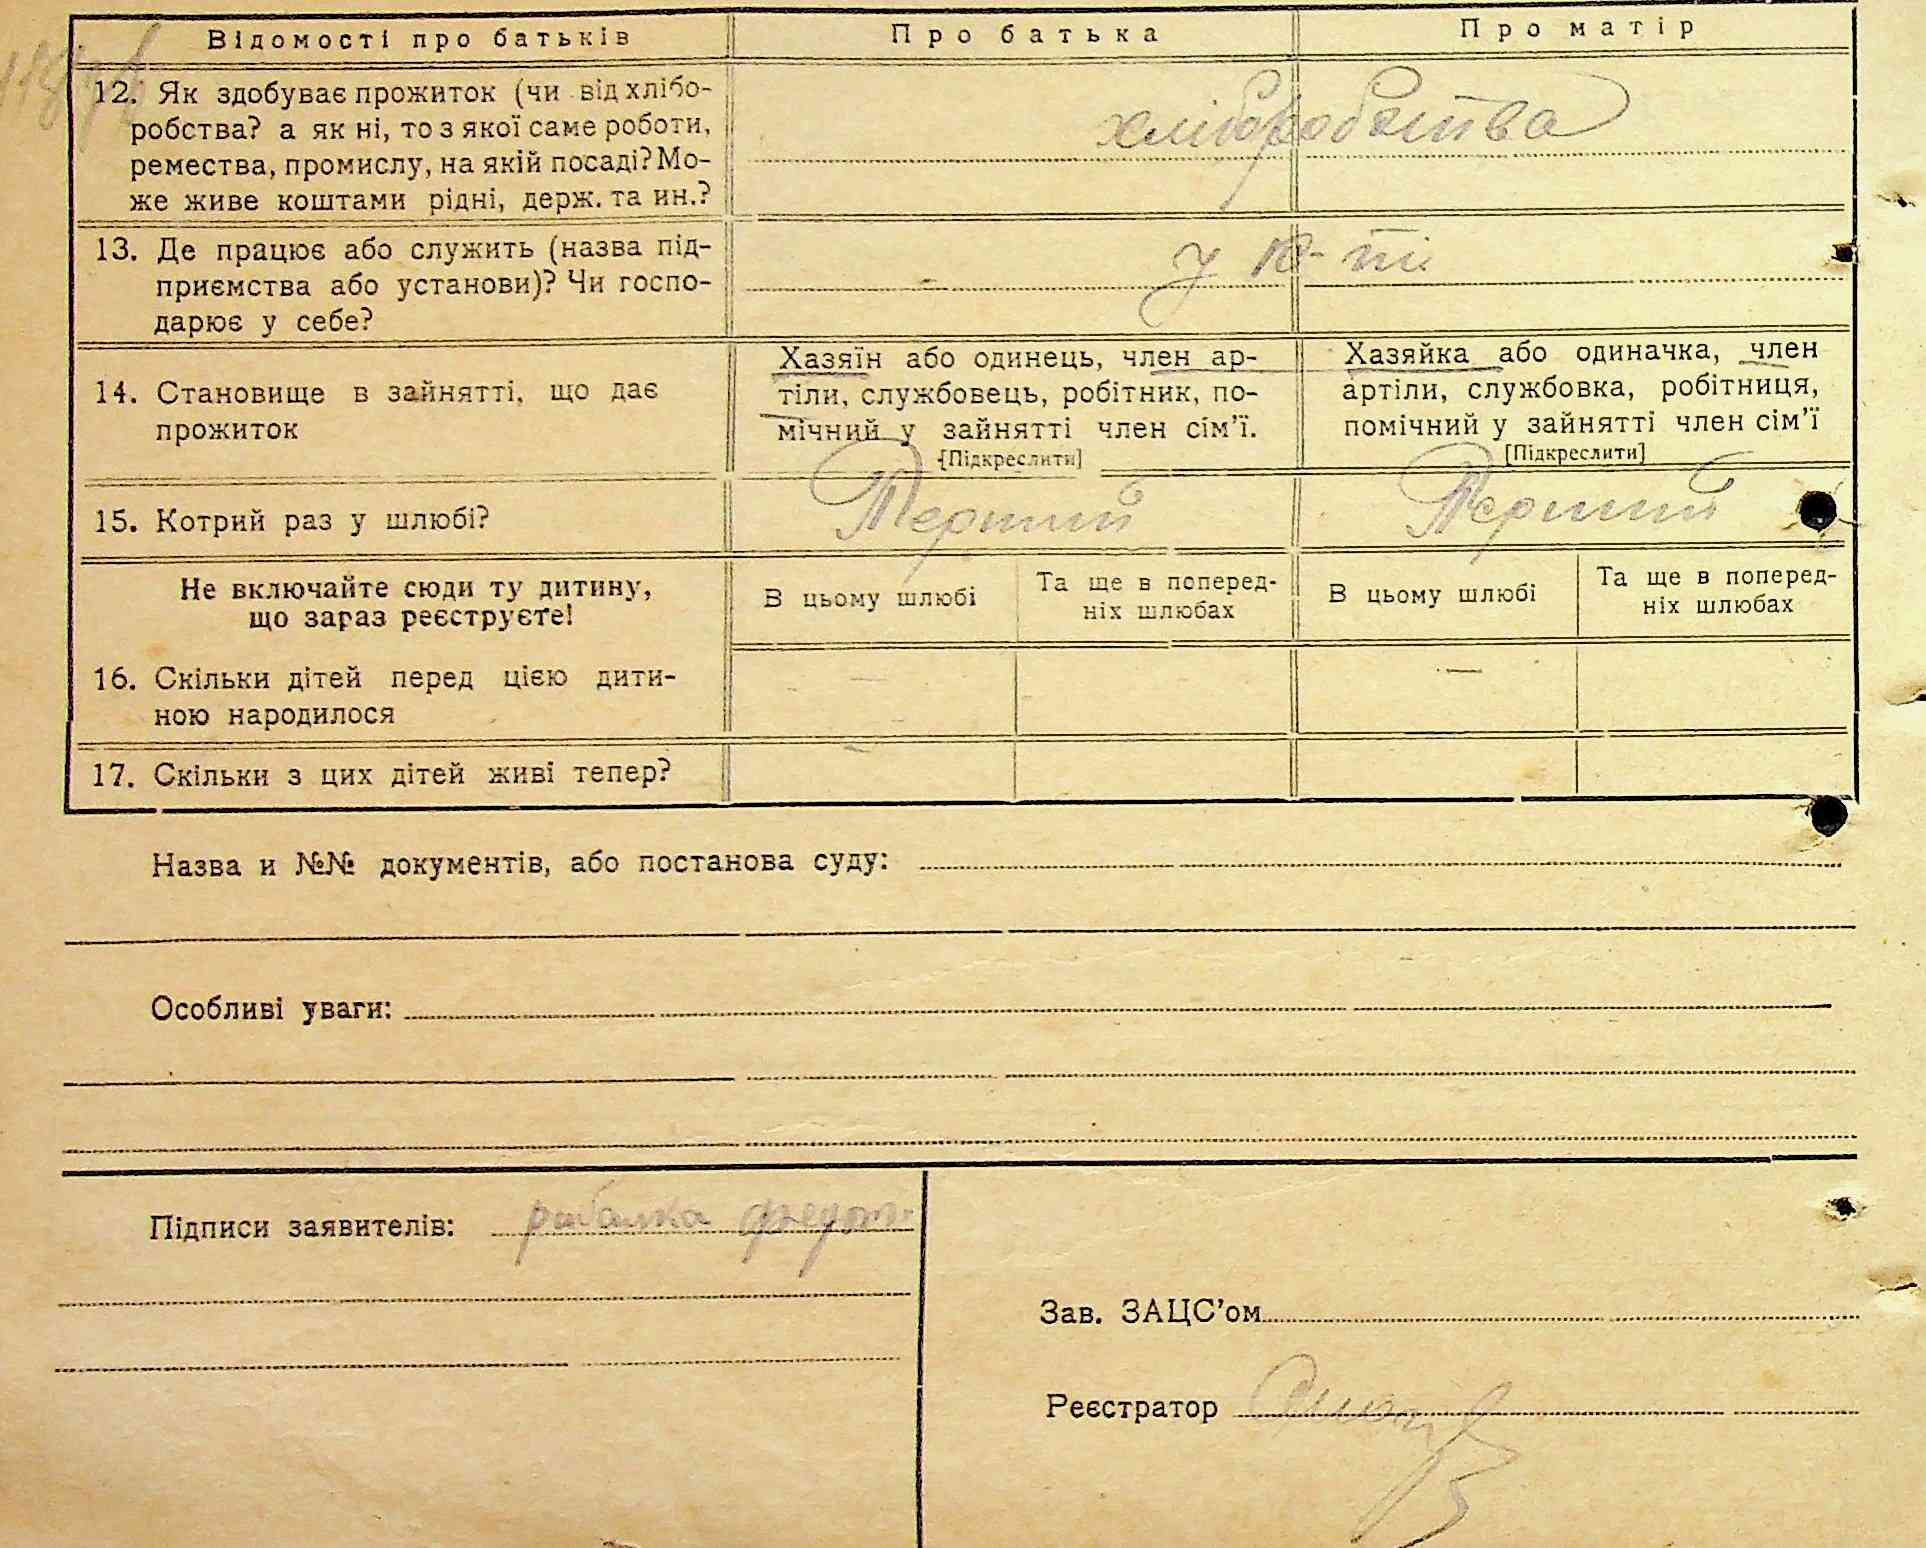 Відомості про батьків
Про батька
Про матір
12. Як здобуває прожиток (чи від хлібо-
робства? а як ні, то з якої саме роботи,
ремества, промислу, на якій посаді? Мо-
же живе коштами рідні, держ. та ин.?
хліборобства
13. Де працює або служить (назва під-
приємства або установи)? Чи госпо-
дарює у себе?
у
14. Становище в зайнятті, що дає
прожиток
Хазяїн або одинець, член ар-
тіли, службовець, робітник, по-
мічний у зайнятті член сім'ї.
[Підкреслити]
Хазяйка або одиначка, член
артіли, службовка, робітниця,
помічний у зайнятті член сім'ї
[Підкреслити]
15. Котрий раз у шлюбі?
Перший
Перший
Не включайте сюди ту дитину,
що зараз реєструєте!
В цьому шлюбі
Та ще в поперед-
ніх шлюбах
В цьому шлюбі
Та ще в поперед-
ніх шлюбах
16. Скільки дітей перед цією дити-
ною народилося
—
—
17. Скільки з цих дітей живі тепер?
Назва и №№ документів, або постанова суду:
Особливі уваги:
Підписи заявителів: рибалка федот
Зав. ЗАЦС'ом
Реєстратор